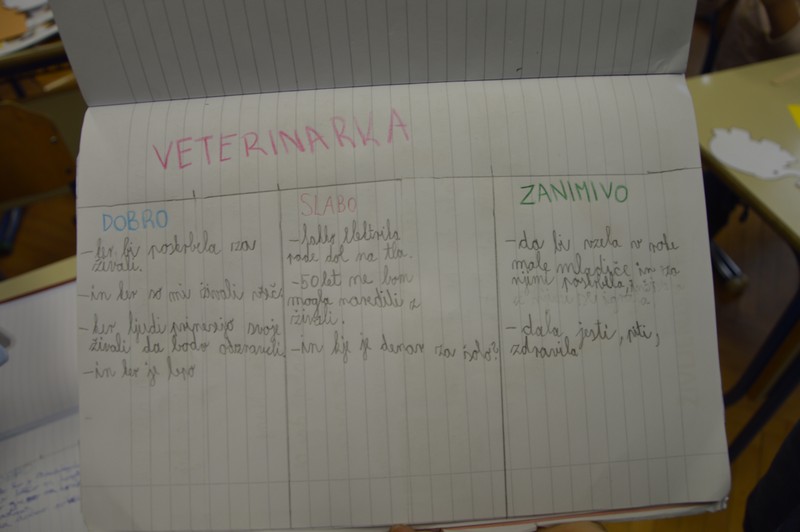 VETERINARKA
DOBRO
- ker bi poskrbela za
živali.
- in ker so mi živali všeč
- ker ljudi prinesejo svoje
živali da bodo ozdraveli
- in ker je lepo
SLABO
rade dol na tla.
- 50 let ne bom
mogla narediti z
živali.
- in kje je denar za šolo?
ZANIMIVO
- da bi vzela v roke
male mladiče in za
njimi poskrbela,
- dala jesti, piti,
zdravila